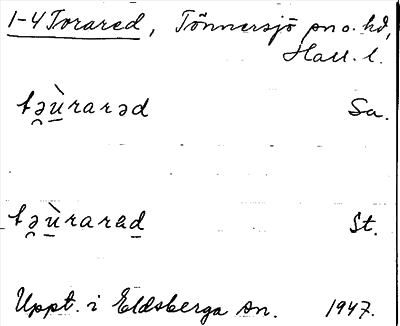 1-4 Torared, Tönnersjö sn o. hd,
Hall. l.
tə̯ù̲rarəd Sa.
tə̯ù̲rarad̲ St.
Uppt. i Eldsberga sn. 1947.